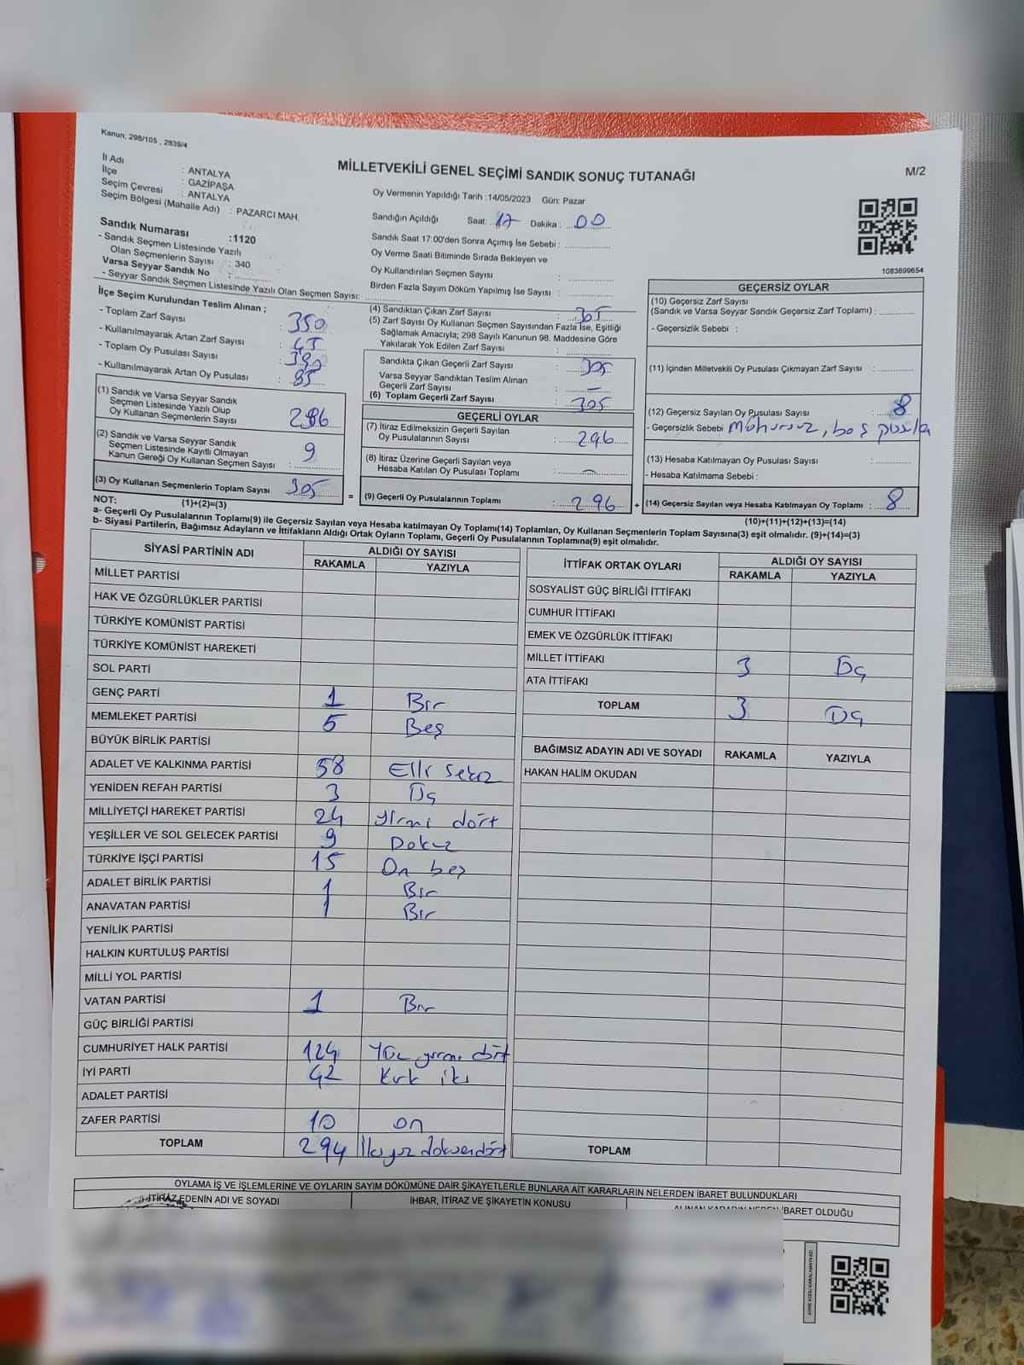 Kanun, 298/105 , 2839/4
İl Adı : ANTALYA
İlçe : GAZİPAŞA
Seçim Çevresi : ANTALYA
Seçim Bölgesi (Mahalle Adı) : PAZARCI MAH.
MİLLETVEKİLİ GENEL SEÇİMİ SANDIK SONUÇ TUTANAĞI
M/2
Oy Vermenin Yapıldığı Tarih :14/05/2023 Gün: Pazar
Sandığın Açıldığı Saat: 17 Dakika : 00
Sandık Saat 17:00'den Sonra Açımış İse Sebebi :
Oy Verme Saati Bitiminde Sırada Bekleyen ve
Oy Kullandırılan Seçmen Sayısı :
Birden Fazla Sayım Döküm Yapılmış İse Sayısı :
Sandık Numarası :1120
- Sandık Seçmen Listesinde Yazılı
Olan Seçmenlerin Sayısı : 340
Varsa Seyyar Sandık No :
- Seyyar Sandık Seçmen Listesinde Yazılı Olan Seçmen Sayısı:
İlçe Seçim Kurulundan Teslim Alınan ;
- Toplam Zarf Sayısı : 350
- Kullanılmayarak Artan Zarf Sayısı : 45
- Toplam Oy Pusulası Sayısı : 390
- Kullanılmayarak Artan Oy Pusulası : 85
(1) Sandık ve Varsa Seyyar Sandık
Seçmen Listesinde Yazılı Olup
Oy Kullanan Seçmenlerin Sayısı : 296
(2) Sandık ve Varsa Seyyar Sandık
Seçmen Listesinde Kayıtlı Olmayan
Kanun Gereği Oy Kullanan Seçmen Sayısı : 9
(3) Oy Kullanan Seçmenlerin Toplam Sayısı : 305
(1)+(2)=(3)
(4) Sandıktan Çıkan Zarf Sayısı : 305
(5) Zarf Sayısı Oy Kullanan Seçmen Sayısından Fazla İse, Eşitliği
Sağlamak Amacıyla; 298 Sayılı Kanunun 98. Maddesine Göre
Yakılarak Yok Edilen Zarf Sayısı :
Sandıkta Çıkan Geçerli Zarf Sayısı : 305
Varsa Seyyar Sandıktan Teslim Alınan
Geçerli Zarf Sayısı : –
(6) Toplam Geçerli Zarf Sayısı : 305
GEÇERLİ OYLAR
(7) İtiraz Edilmeksizin Geçerli Sayılan
Oy Pusulalarının Sayısı : 296
(8) İtiraz Üzerine Geçerli Sayılan veya
Hesaba Katılan Oy Pusulası Toplamı : –
= (9) Geçerli Oy Pusulalarının Toplamı : 296
1083699654
GEÇERSİZ OYLAR
(10) Geçersiz Zarf Sayısı
(Sandık ve Varsa Seyyar Sandık Geçersiz Zarf Toplamı) :
- Geçersizlik Sebebi :
(11) İçinden Milletvekili Oy Pusulası Çıkmayan Zarf Sayısı :
(12) Geçersiz Sayılan Oy Pusulası Sayısı : 8
- Geçersizlik Sebebi : Mühürsüz, boş pusula
(13) Hesaba Katılmayan Oy Pusulası Sayısı :
- Hesaba Katılmama Sebebi :
+ (14) Geçersiz Sayılan veya Hesaba Katılmayan Oy Toplamı : 8
(10)+(11)+(12)+(13)=(14)
NOT:
a- Geçerli Oy Pusulalarının Toplamı(9) ile Geçersiz Sayılan veya Hesaba katılmayan Oy Toplamı(14) Toplamları, Oy Kullanan Seçmenlerin Toplam Sayısına(3) eşit olmalıdır. (9)+(14)=(3)
b- Siyasi Partilerin, Bağımsız Adayların ve İttifakların Aldığı Ortak Oyların Toplamı, Geçerli Oy Pusulalarının Toplamına(9) eşit olmalıdır.
SİYASİ PARTİNİN ADI ALDIĞI OY SAYISI
RAKAMLA YAZIYLA
MİLLET PARTİSİ
HAK VE ÖZGÜRLÜKLER PARTİSİ
TÜRKİYE KOMÜNİST PARTİSİ
TÜRKİYE KOMÜNİST HAREKETİ
SOL PARTİ
GENÇ PARTİ 1 Bir
MEMLEKET PARTİSİ 5 Beş
BÜYÜK BİRLİK PARTİSİ
ADALET VE KALKINMA PARTİSİ 58 Elli sekiz
YENİDEN REFAH PARTİSİ 3 Üç
MİLLİYETÇİ HAREKET PARTİSİ 24 yirmi dört
YEŞİLLER VE SOL GELECEK PARTİSİ 9 Dokuz
TÜRKİYE İŞÇİ PARTİSİ 15 On beş
ADALET BİRLİK PARTİSİ 1 Bir
ANAVATAN PARTİSİ 1 Bir
YENİLİK PARTİSİ
HALKIN KURTULUŞ PARTİSİ
MİLLİ YOL PARTİSİ
VATAN PARTİSİ 1 Bir
GÜÇ BİRLİĞİ PARTİSİ
CUMHURİYET HALK PARTİSİ 124 Yüz yirmi dört
İYİ PARTİ 42 Kırk iki
ADALET PARTİSİ
ZAFER PARTİSİ 10 on
TOPLAM 294 İkiyüz doksandört
İTTİFAK ORTAK OYLARI ALDIĞI OY SAYISI
RAKAMLA YAZIYLA
SOSYALİST GÜÇ BİRLİĞİ İTTİFAKI
CUMHUR İTTİFAKI
EMEK VE ÖZGÜRLÜK İTTİFAKI
MİLLET İTTİFAKI 3 Üç
ATA İTTİFAKI
TOPLAM 3 Üç
BAĞIMSIZ ADAYIN ADI VE SOYADI RAKAMLA YAZIYLA
HAKAN HALİM OKUDAN
TOPLAM
OYLAMA İŞ VE İŞLEMLERİNE VE OYLARIN SAYIM DÖKÜMÜNE DAİR ŞİKAYETLERLE BUNLARA AİT KARARLARIN NELERDEN İBARET BULUNDUKLARI
İTİRAZ EDENİN ADI VE SOYADI
İHBAR, İTİRAZ VE ŞİKAYETİN KONUSU
ALINAN KARARIN NEDEN İBARET OLDUĞU